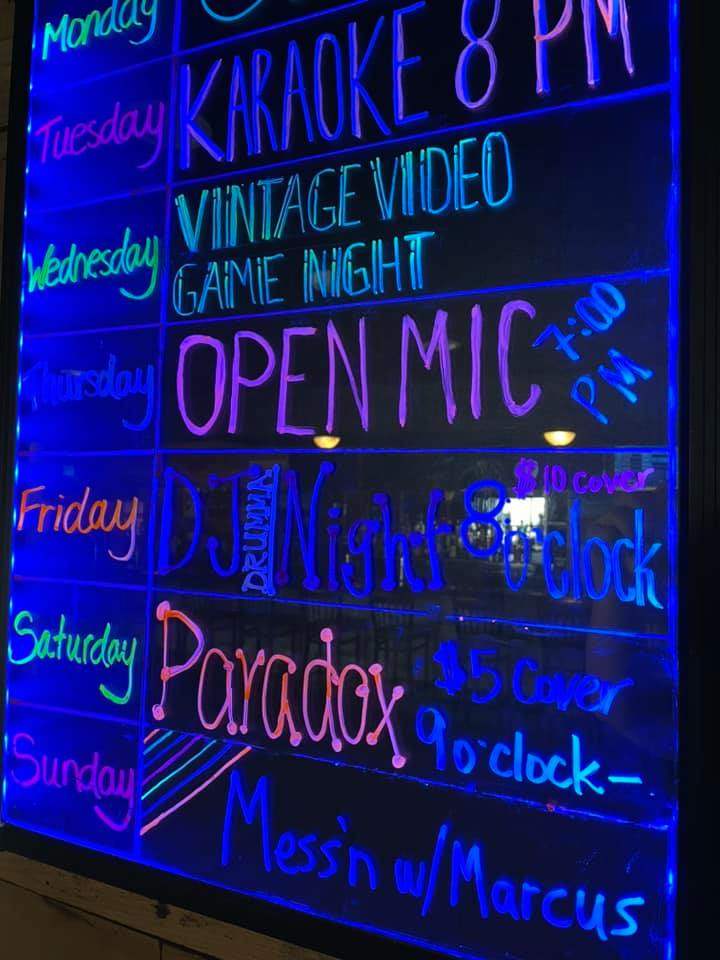 Monday
Tuesday KARAOKE 8 PM
Wednesday VINTAGE VIDEO
GAME NIGHT
Thursday OPEN MIC 7:00
PM
Friday DJ DRUMMA Night 8 o'clock
$10 cover
Saturday Paradox $5 Cover
9 o'clock-
Sunday
Mess'n w/Marcus